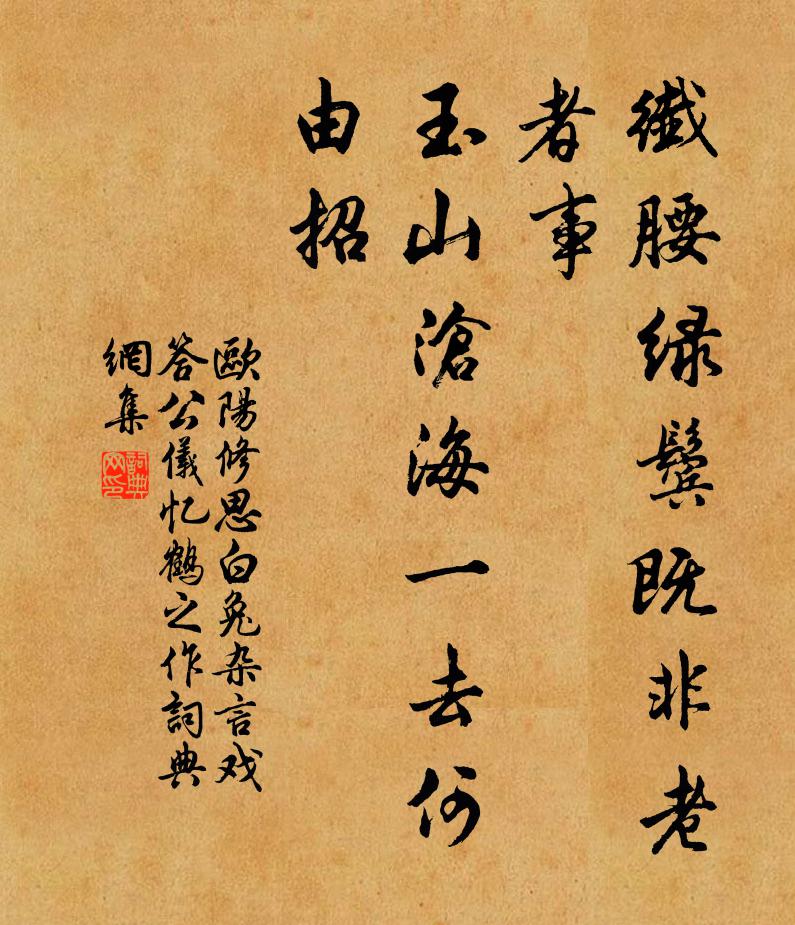 纖腰绿鬓既非老
者事
玉山滄海一去何
由招
歐陽修思白兔杂言戏
答公儀忆鶴之作詞典
網集
詞典
网印